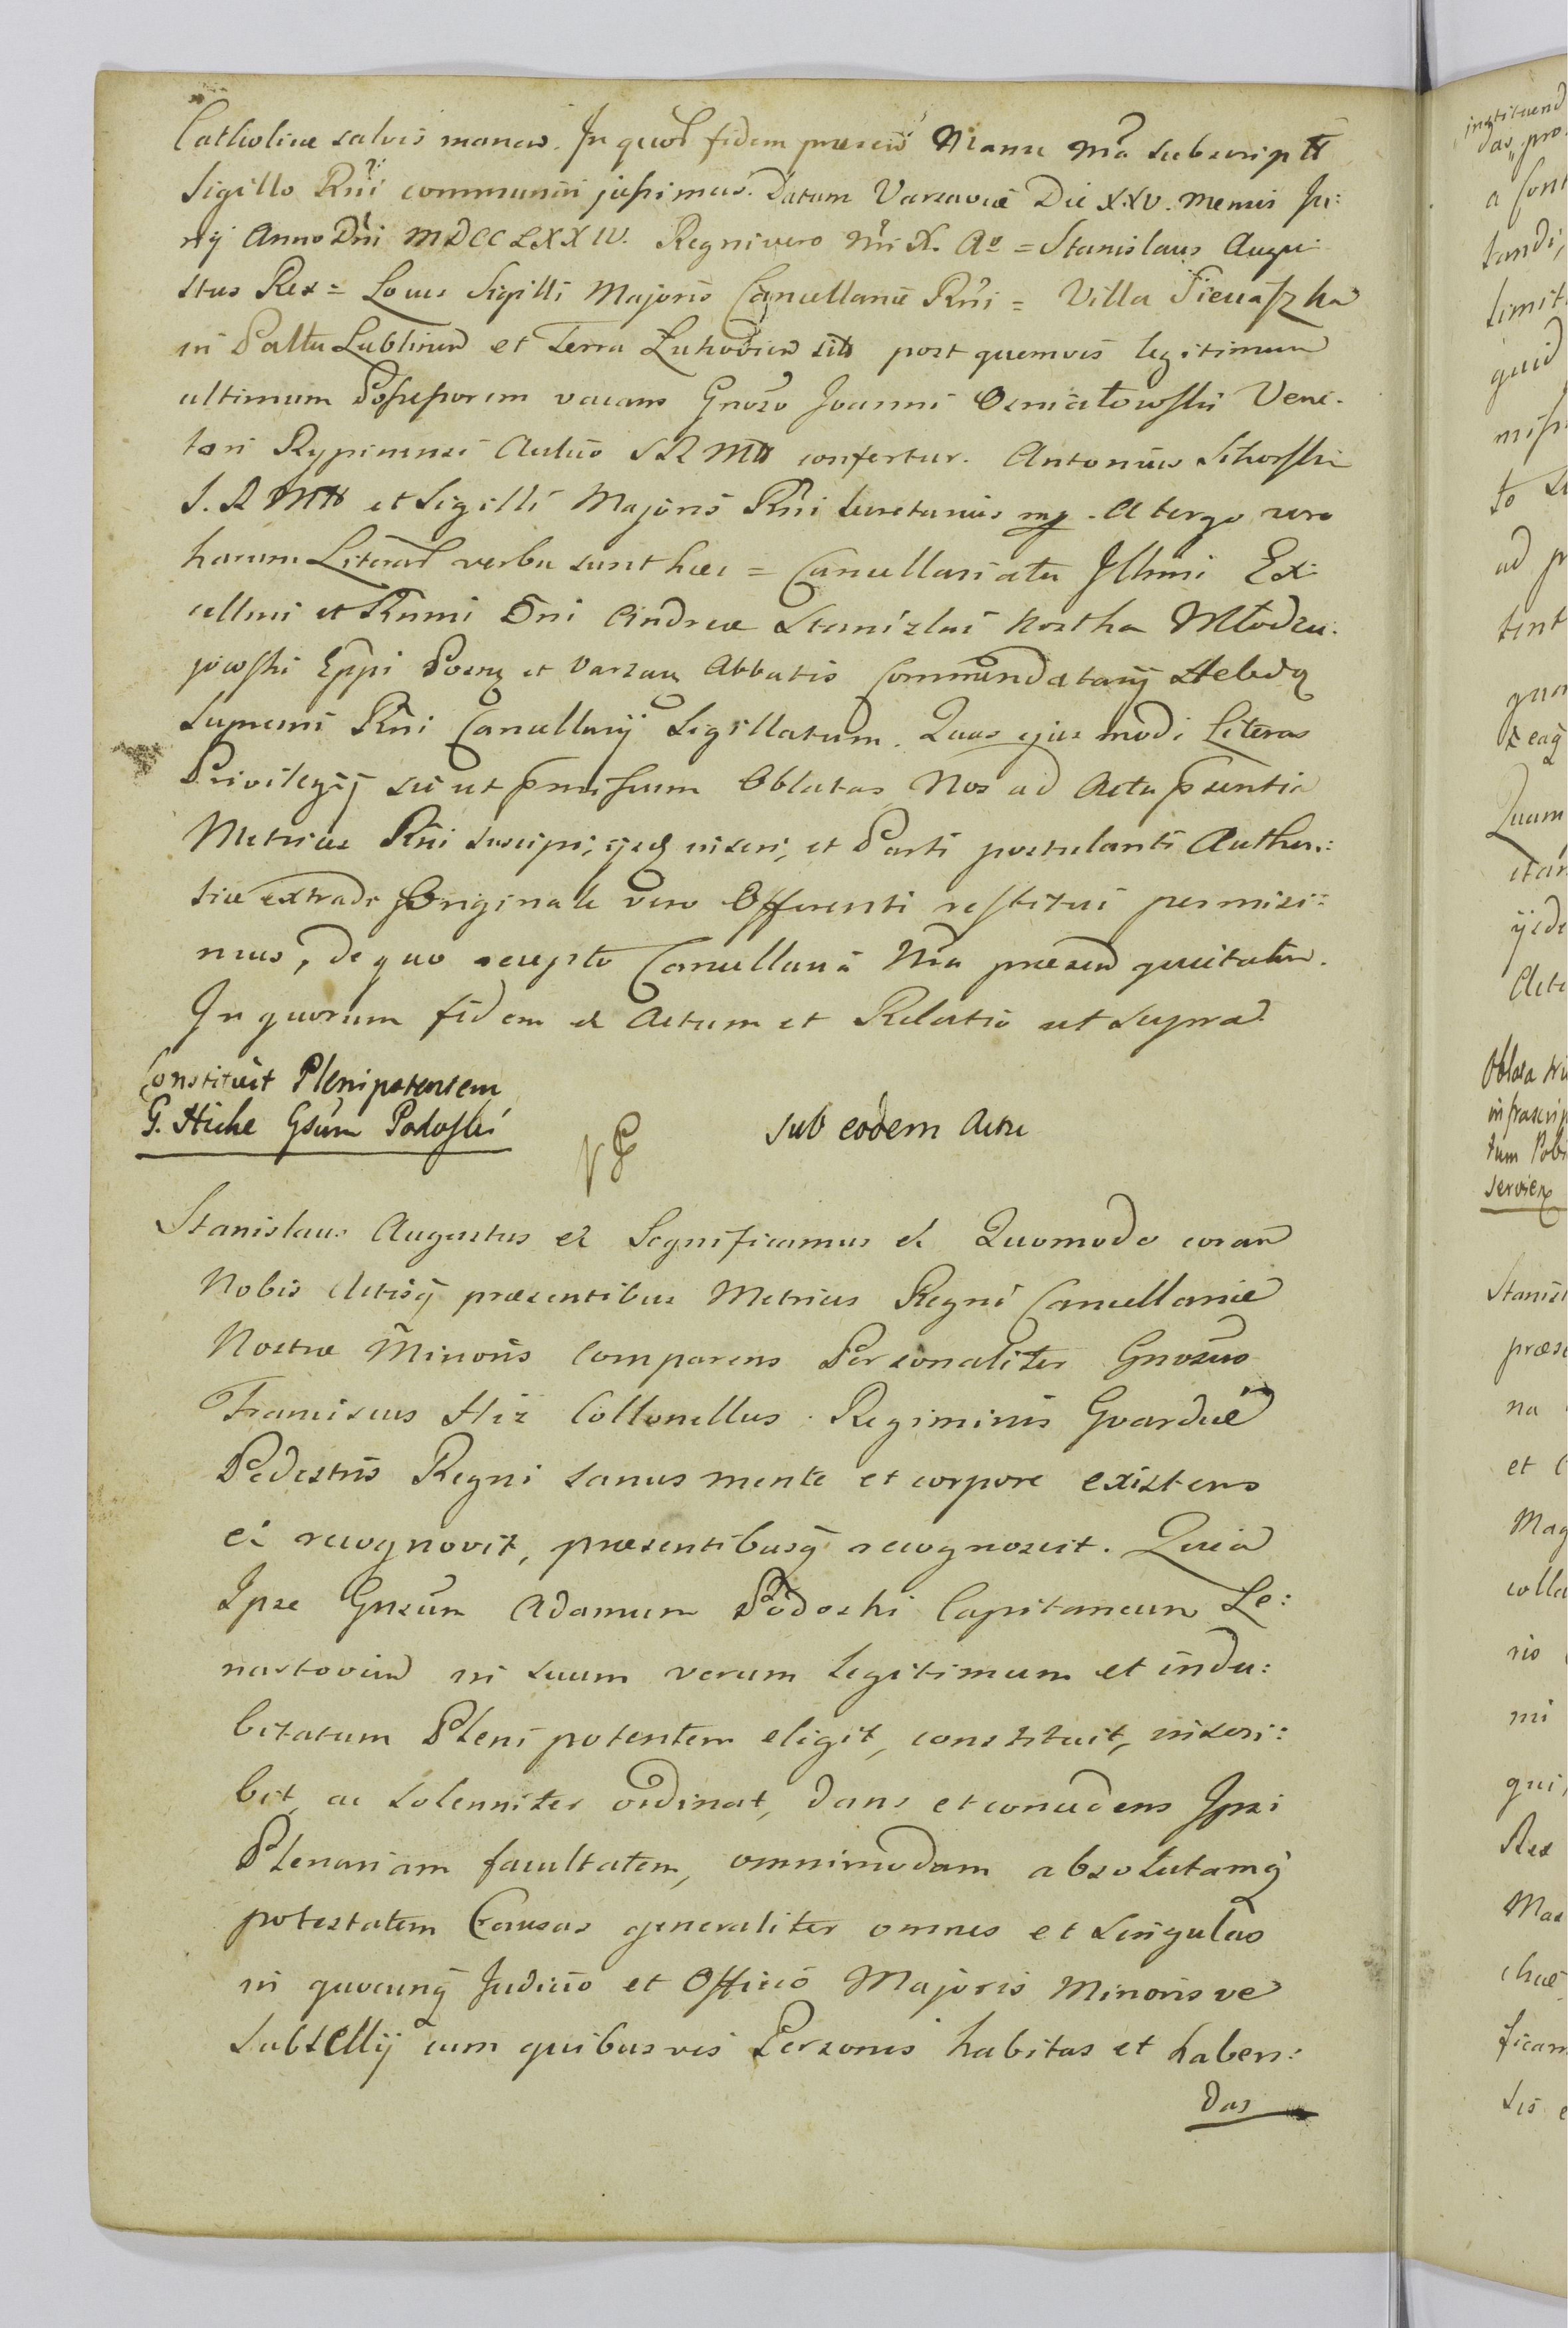 Catholicae salvis manen. In quor fidem praesen Manu Nra subscriptt
Sigillo Rni communiri jussimus. Datum Varsaviae Die XXV. Mensis Ju:
nij Anno Dni MDCCLXXIV. Regni vero Nri X. Ao = Stanislaus Augu:
stus Rex = Locus Sigilli Majoris Cancellariae Rni = Villa
in Palttu Lublinen et Terra Lukovien sita post quemvis legitimum
ultimum Possessorem vacans Gnoso Joanni Vena-
tori Rypinensi Aulico S R Mtt confertur. Antonius Sikorski
S. R Mtt et Sigilli Majoris Rni Secretarius mp. A tergo vero
harum Literar verba sunt haec = Cancellariatu Illmi Ex:
cellmi et Rnmi Dni Andreae Stanislai Kostka Młodzie:
jowski Eppi Posn et Varsav Abbatis Commendatarij Hebdo
Supremi Rni Cancellarij Sigillatum. Quas ejusmodi Literas
Privilegij sic ut pmissum Oblatas Nos ad Acta psentia
Metrices Rni suscipi, ijsq inseri, et Parti postulanti Authen:
tice extradi, Originale vero Offerenti restitui permisi:
mus, de quo recepto Cancellaria Nra praesen quietatur.
In quorum fidem et Actum et Relatio ut supra.
Constituit Plenipotentem
G. Hiche Gsum Podoski
sub eodem Actu
Stanislaus Augustus et Significamus et Quomodo coram
Nobis Actisq praesentibus Metrices Regni Cancellariae
Nostrae Minoris comparens Personaliter Gnosus
Franciscus Hiz Collonellus Regiminis Gvardiae
Pedestris Regni sanus mente et corpore existens
et recognovit, praesentibusq recognoscit. Quia
Ipse Gnsum Adamum Podoski Capitaneum Le:
nartovien in suum verum legitimum et indu:
bitatum Plenipotentem eligit, constituit, inscri:
bit, ac solenniter ordinat, dans et concedens Ipsi
Plenariam facultatem, omnimodam absolutamq
potestatem Causas generaliter omnes et singulas
in quocunq Judicio et Officio Majoris Minorisve
Subsellij cum quibusvis Personis habitas et haben:
das